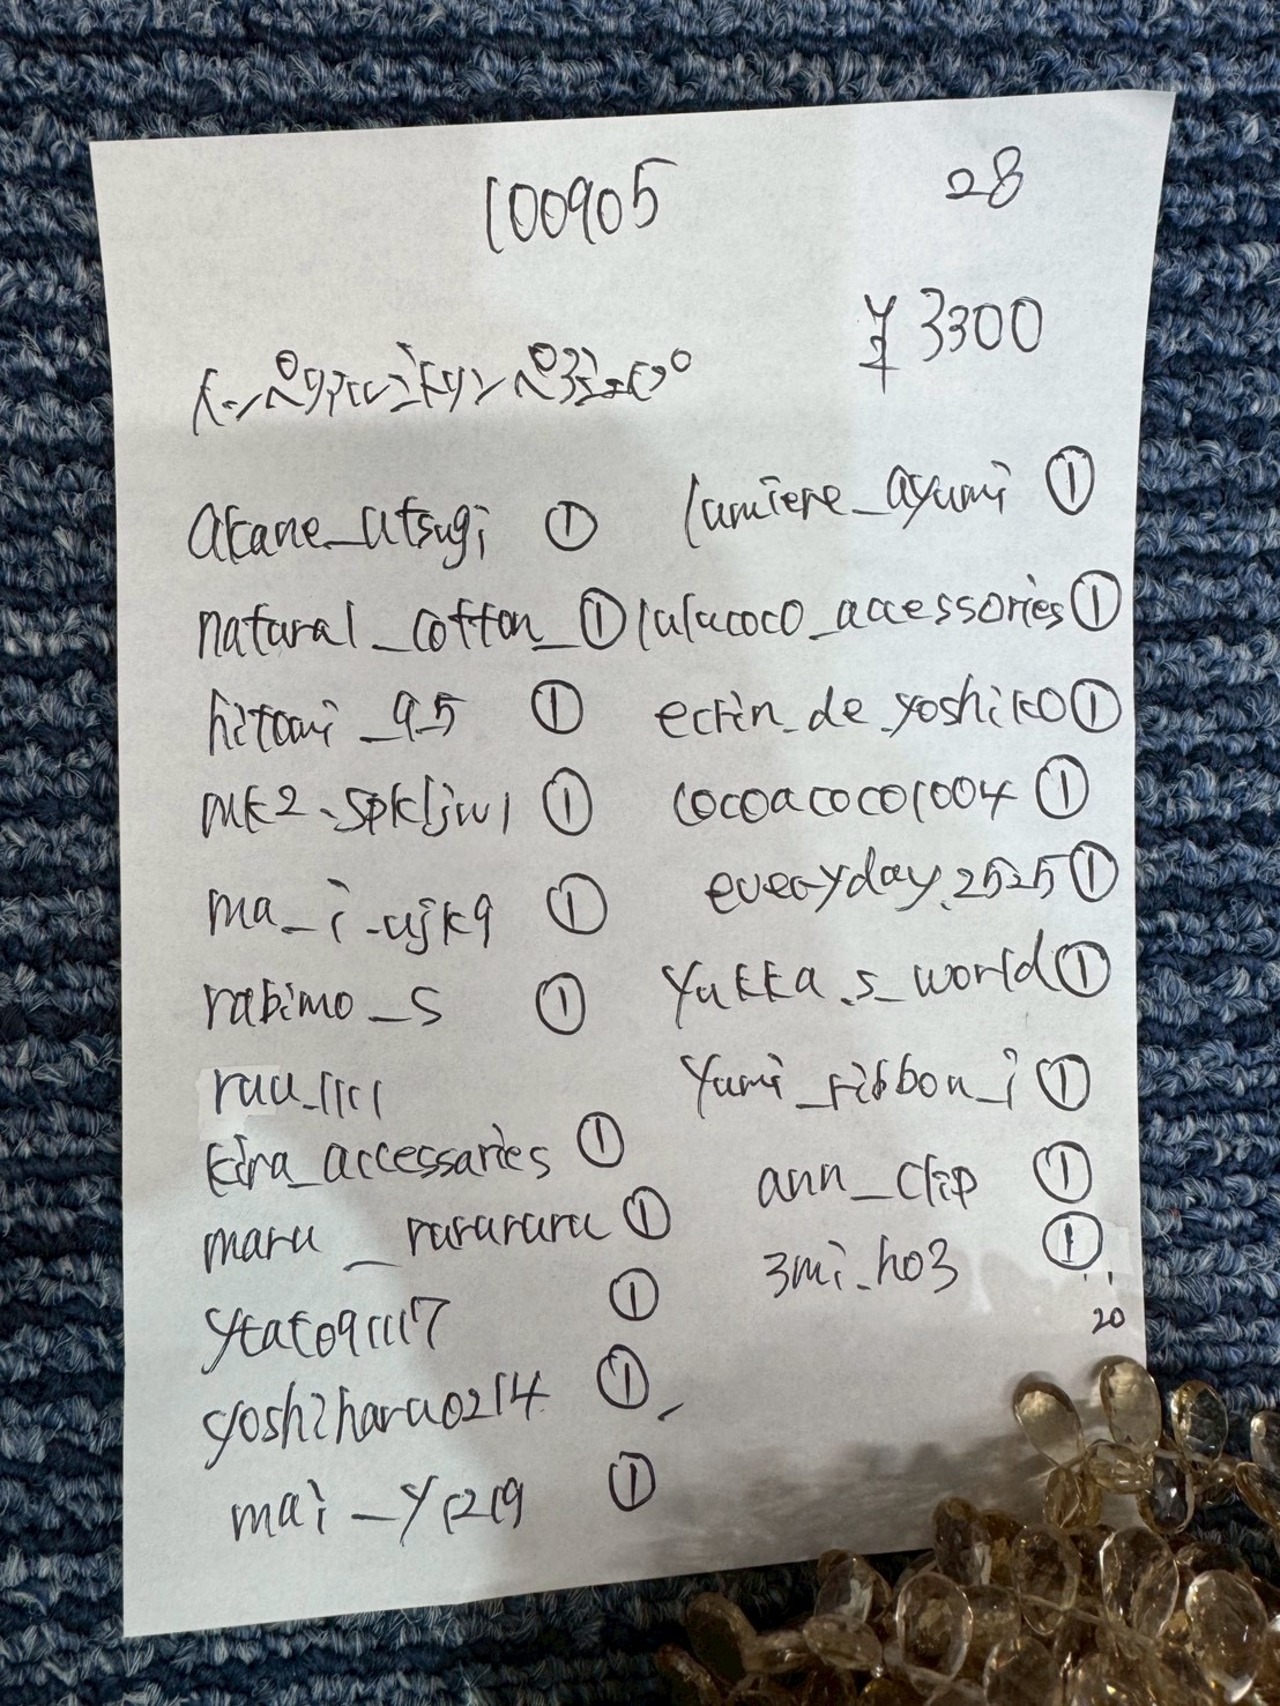 100905
28
¥3300
akane_utsugi ①
natural_cotton_ ①
hitomi_95 ①
mk2.spkljw1 ①
ma_i.ujk9 ①
rabimo_s ①
ruu_1101
kira_accessaries ①
maru__rurururu ①
ykato91117 ①
yoshiharu0214 ①
mai_y1219 ①
lumiere_ayumi ①
lulucoco_accessories ①
ecrin_de_yoshiko ①
cocoacoco1004 ①
everyday.2525 ①
yukka.s_world ①
yumi_ribbon_i ①
ann_clip ①
3mi.ho3 ①
20